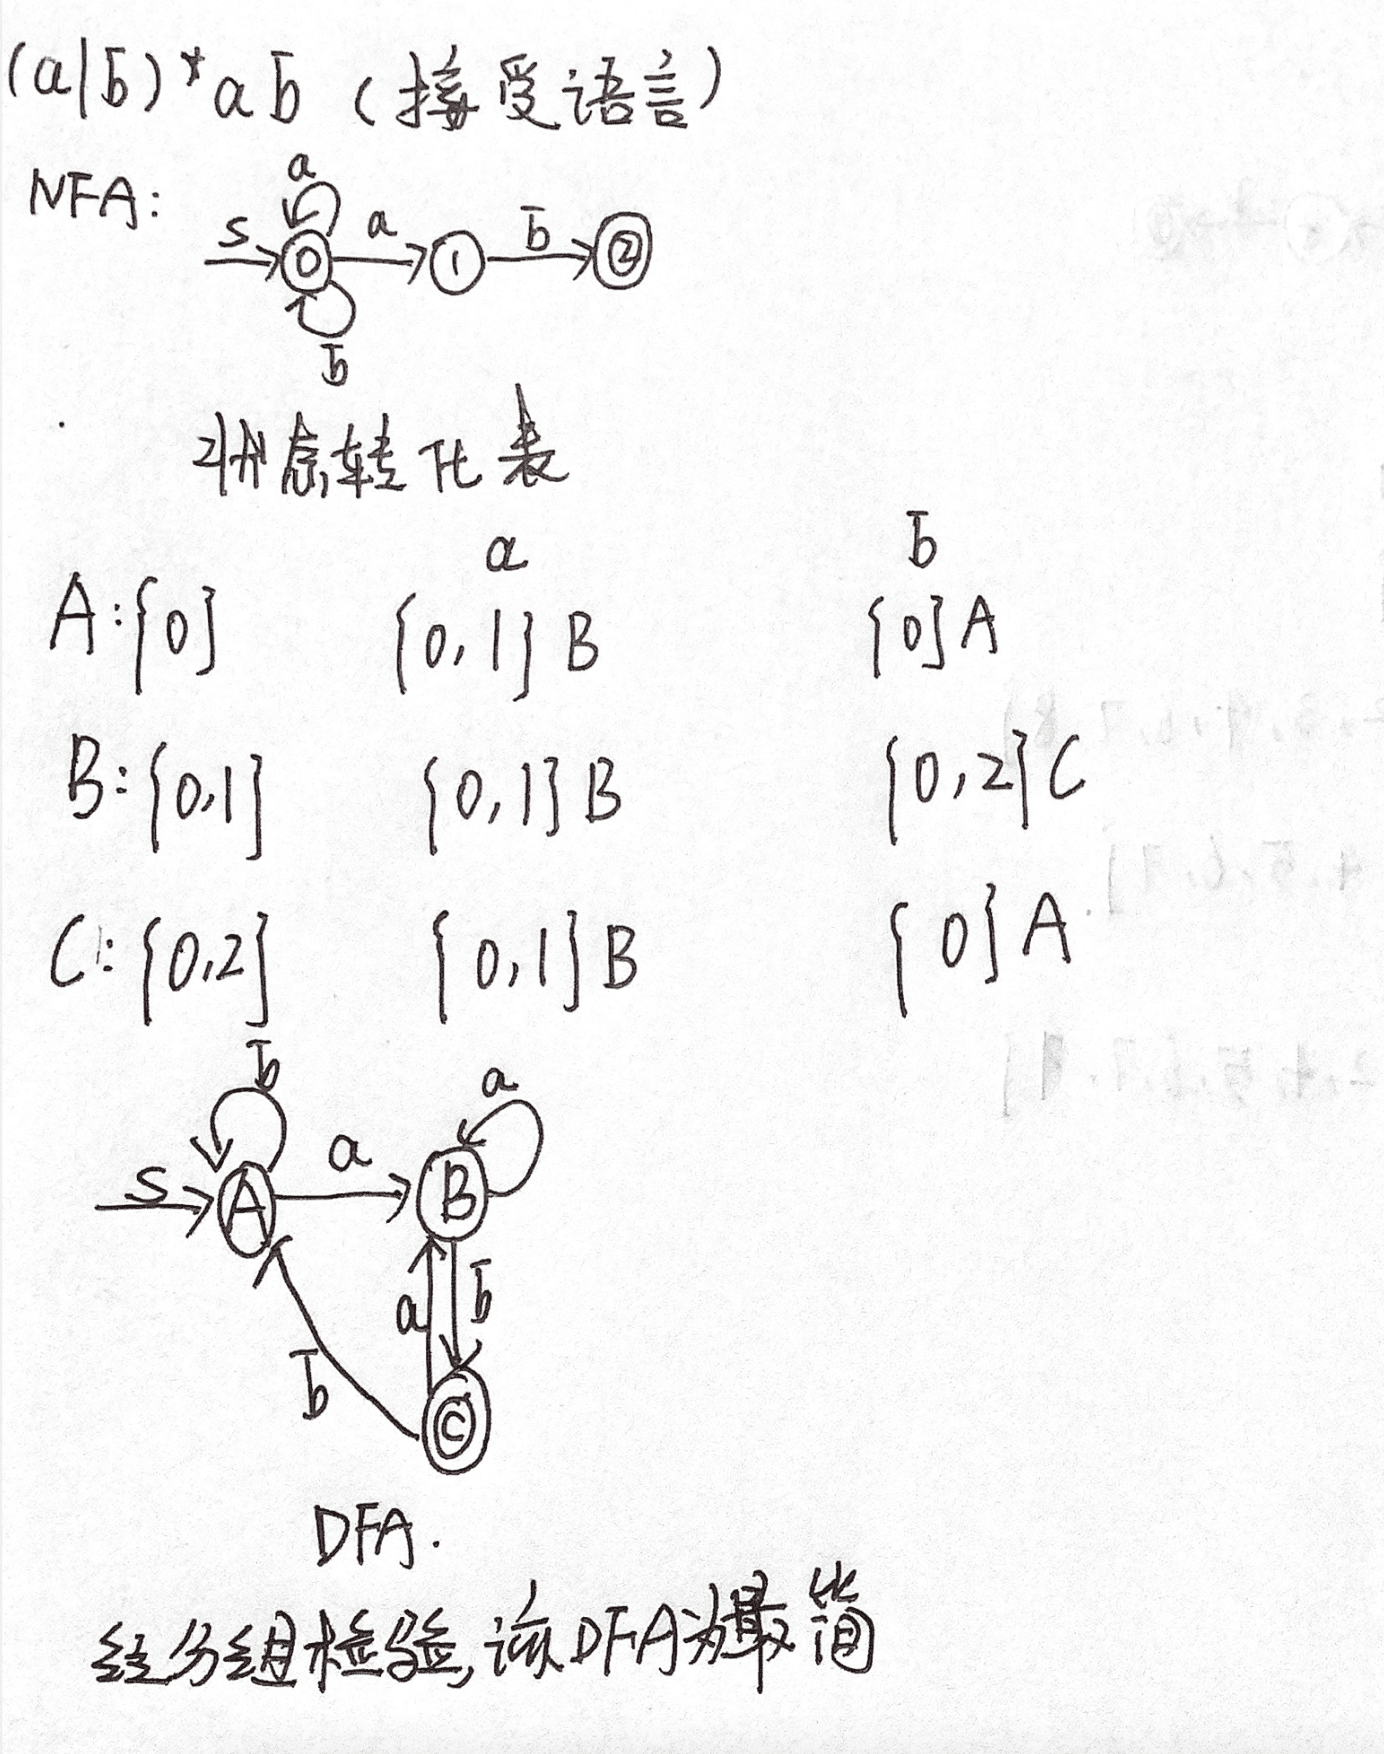 (a|b)*ab (接受语言)
NFA:
a
s 0 a 1 b 2
b
状态转化表
a b
A:{0} {0,1}B {0}A
B:{0,1} {0,1}B {0,2}C
C:{0,2} {0,1}B {0}A
b a
s A a B
a b
b
C
DFA.
经分组检验,该DFA为最简